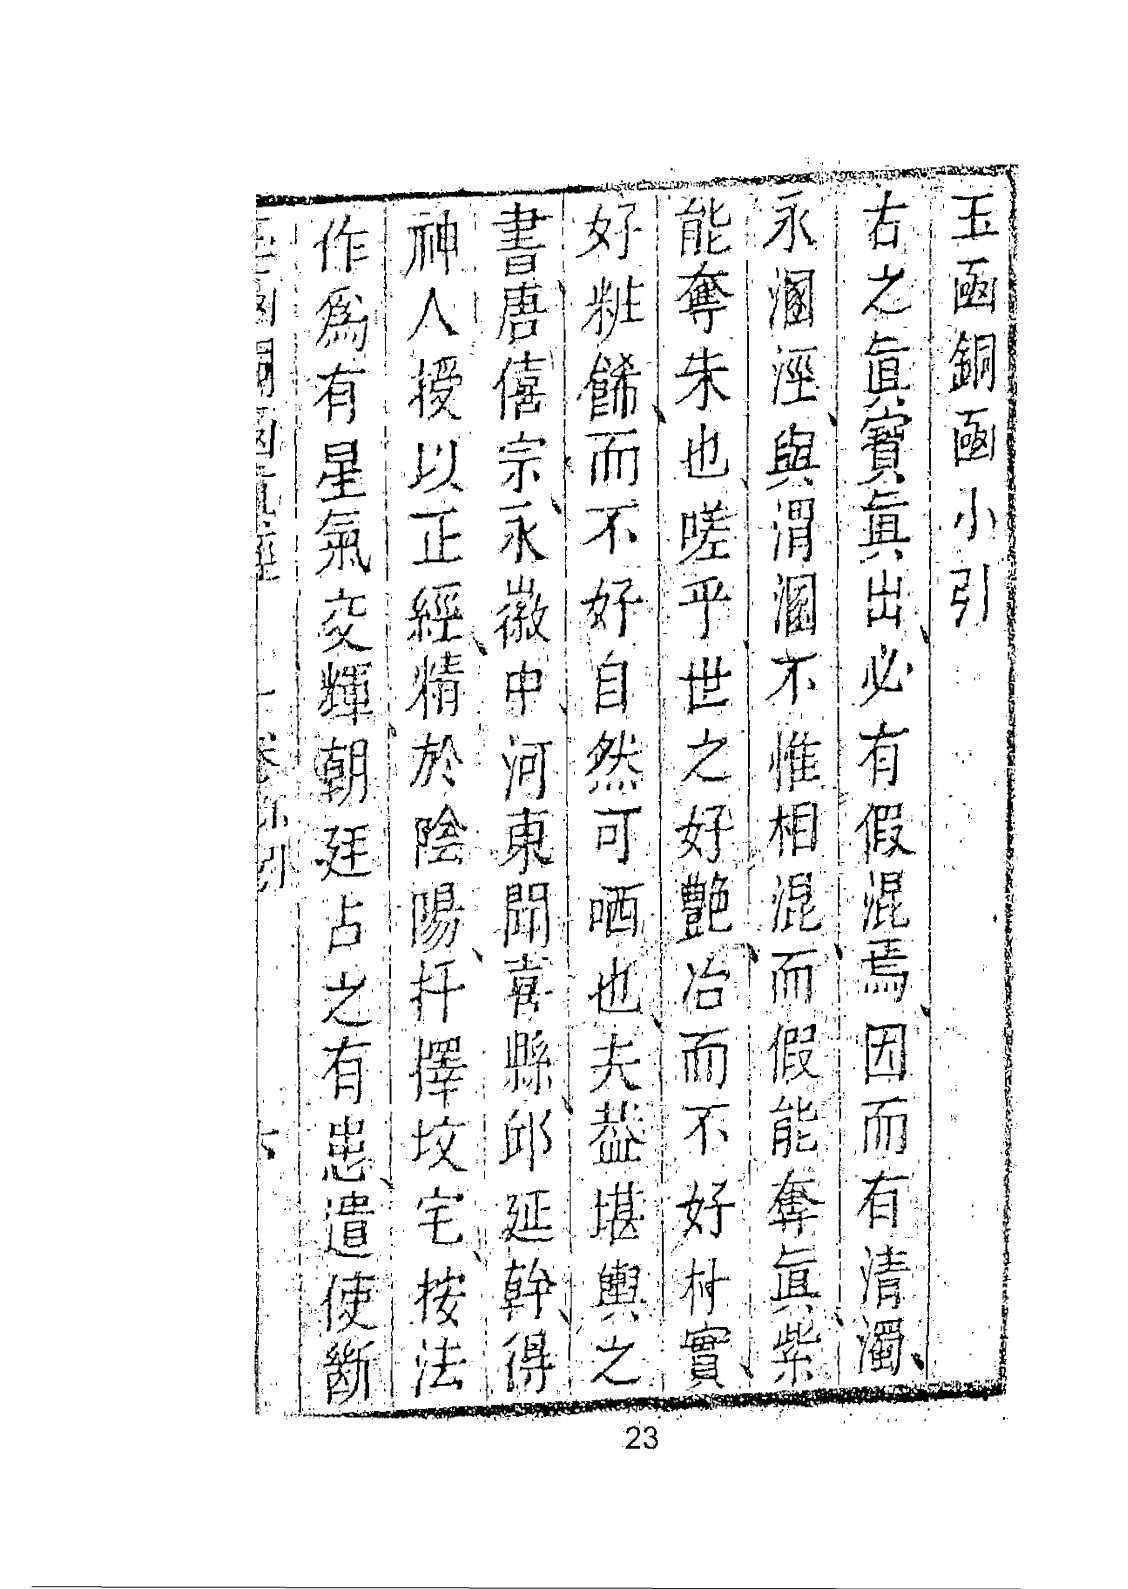 玉函銅函小引
右之眞寳眞出必有假混焉因而有清濁
永溷涇與渭溷不惟相混而假能奪眞紫
能奪朱也嗟乎世之好艷冶而不好村實
好粧餙而不好自然可哂也夫葢堪輿之
書唐僖宗永徽中河東聞喜縣邱延幹得
神人授以正經精於陰陽扦擇坟宅按法
作爲有星氣交輝朝廷占之有患遣使斷
23